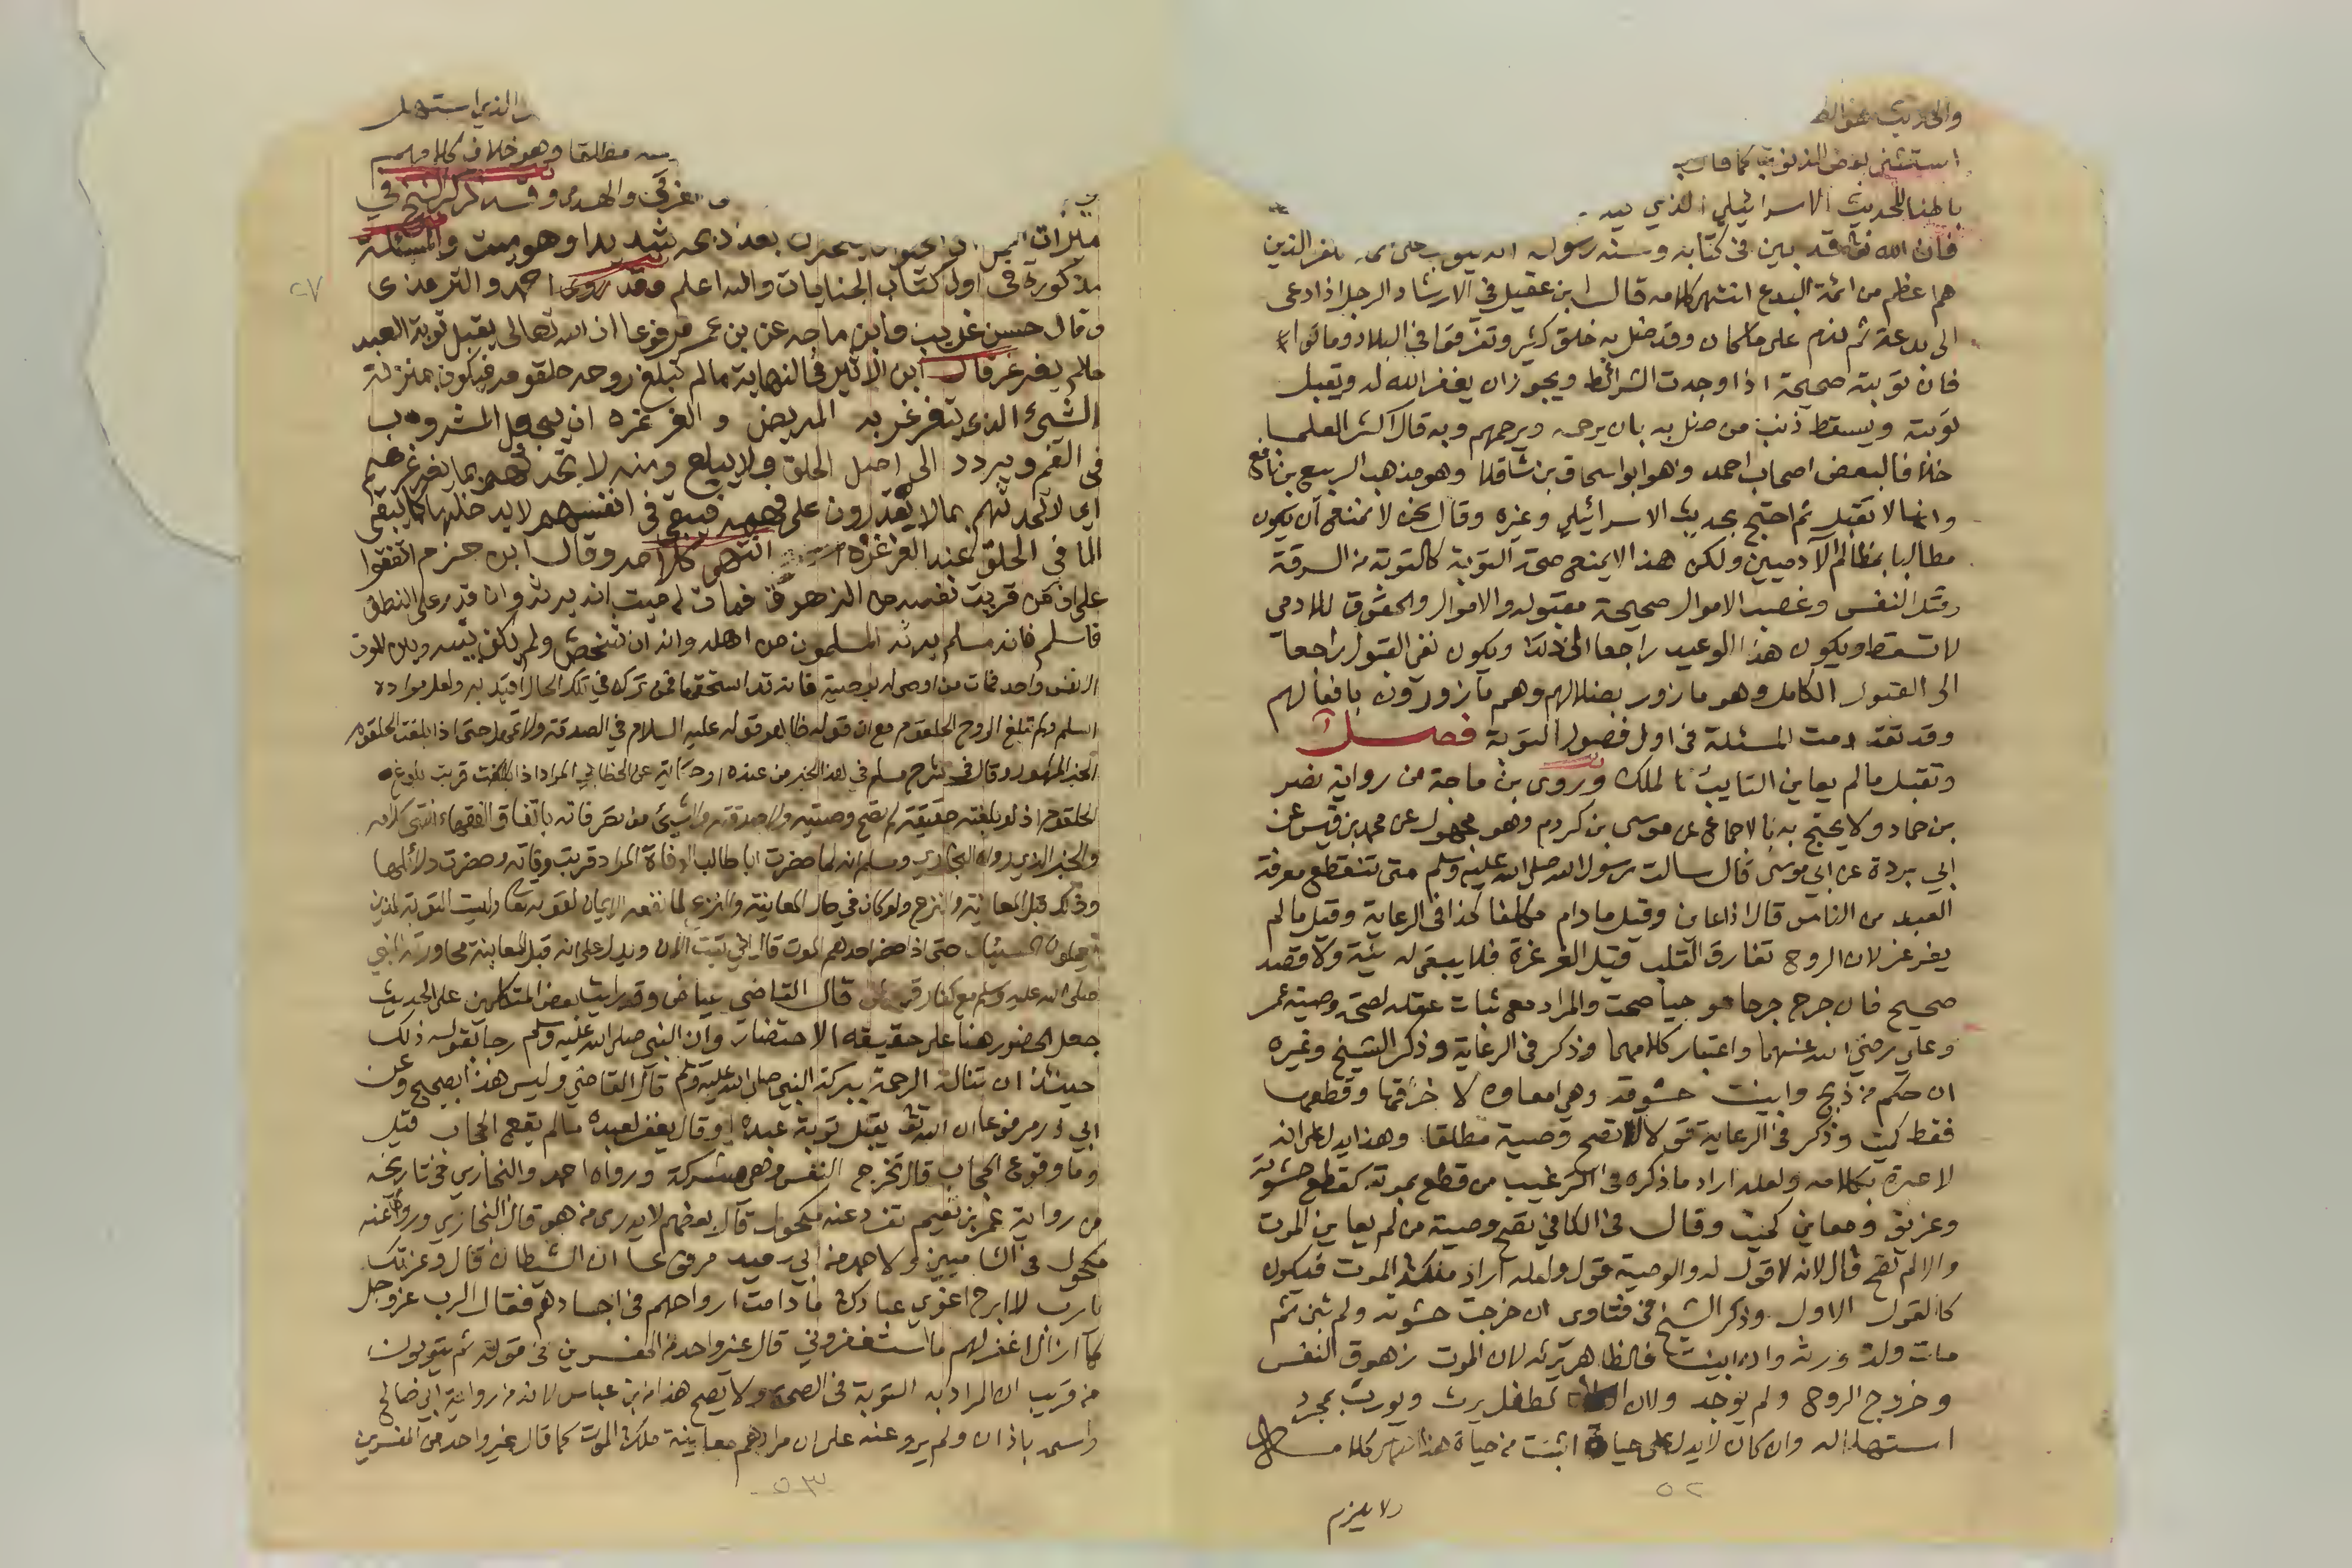 والحديث عن الظ
استثنى بعض الذنوب كما قال
باطنا للحديث الاسرائيلي الذي فيه
فان الله تعالى قد بين في كتابه وسنة رسوله انه يتوب على ائمة الكفر الذين
هم اعظم من ائمة البدع انتهى كلامه قال ابن عقيل في الارشاد الرجل اذا دعى
الى بدعة ثم ندم على ما كان وقد ضل به خلق كثير وتفرقوا في البلاد وماتوا
فان توبته صحيحة اذا وجدت الشرائط ويجوز ان يغفر الله له ويقبل
توبته ويسقط ذنب من ضل به بان يرحمه ويرحمهم وبه قال اكثر العلما
خلافا لبعض اصحاب احمد وهو ابو اسحاق بن شاقلا وهو مذهب الربيع بن نافع
وانها لا تقبل ثم احتج بحديث الاسرائيلي وغيره وقال نحن لا نمنع ان يكون
مطالبا بمظالم الآدميين ولكن هذا لا يمنع صحة التوبة كالتوبة من السرقة
وقتل النفس وغصب الاموال صحيحة مقبوله والاموال والحقوق للادمي
لا تسقط ويكون هذا الوعيد راجعا الى ذلك ويكون نفي القبول راجعا
الى القبول الكامل وهو مازور بضلالهم وهم مازورون بافعالهم
وقد تقدمت المسئلة في اول فصول التوبة فصل
وتقبل ما لم يعاين التايب الملك وروى بن ماجة من رواية نصر
بن حماد ولا يحتج به بالاجماع عن موسى بن كردم وهو مجهول عن محمد بن قيس عن
ابي بردة عن ابي موسى قال سالت رسول الله صلى الله عليه وسلم متى تنقطع معرفة
العبد من الناس قال اذا عاين وقيل ما دام مكلفا كذا في الرعاية وقيل ما لم
يغرغر لان الروح تفارق القلب قبل الغرغرة فلا يبقى له نية ولا قصد
صحيح فان جرح جرحا موحيا صحت والمراد مع ثبات عقله لصحة وصية عمر
وعلي رضي الله عنهما واعتبار كلامهما وذكر في الرعاية وذكر الشيخ وغيره
ان حكم من ذبح وابينت حشوته وهي امعاوه لا خرقها وقطعها
فقط كميت وذكر في الرعاية قولا لا تصح وصية مطلقا وهذا يدل على انه
لا عبرة بكلامه ولعله اراد ما ذكره في الترغيب من قطع بموته كقطع حشوته
وغريق ومعاين كميت وقال في الكافي تصح وصية من لم يعاين الموت
والا لم تصح قال لانه لا قول له والوصية قول ولعله اراد ملك الموت فيكون
كالقول الاول وذكر الشيخ في فتاوى ان خرجت حشوته ولم تبن ثم
مات ولده ورثه وان ابينت فالظاهر يرثه لان الموت زهوق النفس
وخروج الروح ولم يوجد ولان الطفل يرث ويورث بمجرد
استهلاله وان كان لا يدل على حياة اثبت من حياة هذا انتهى كلامه
ولا يلزم
٥٢
الذي استهل
مطلقا وهو خلاف كلامهم
الغرقى والهدمى وقد ذكر الشيخ في
ميراث
بعد ذبحه شديدا وهو ميت والمسئلة
مذكورة في اول كتاب الجنايات والله اعلم وقد روى احمد والترمذي
وقال حسن غريب وابن ماجه عن بن عمر مرفوعا ان الله تعالى يقبل توبة العبد
ما لم يغرغر قال ابن الاثير في النهاية ما لم تبلغ روحه حلقومه فيكون بمنزلة
الشيء الذي يتغرغر به المريض والغرغرة ان يجعل المشروب
في الفم ويردد الى اصل الحلق ولا يبلع ومنه لا تحدثهم بما يغرغرهم
اي لا تحدثهم بما لا يقدرون على فهمه فيبقى في انفسهم لا يدخلها كما يبقى
الما في الحلق عند الغرغرة انتهى كلامه وقال ابن حزم اتفقوا
على ان من قربت نفسه من الزهوق فمات له ميت انه يرثه وان قدر على النطق
فاسلم فانه مسلم يرثه المسلمون من اهله وانه ان شخص ولم يكن بينه وبين الموت
الا نفس واحد فمات من اوصى له بوصية فانه قد استحقها فمن قتله في تلك الحال اقيد به ولعل مراده
اسلم ولم تبلغ الروح الحلقوم مع ان قوله ظاهر قوله عليه السلام في الصدقة ولا تمهل حتى اذا بلغت الحلقوم
الخبر المشهور وقال في شرح مسلم في هذا الخبر من عنده او حكاية عن الخطابي المراد اذا بلغت قربت بلوغ
الحلقوم اذ لو بلغته حقيقة لم تصح وصيته ولا صدقته ولا شيئ من تصرفاته باتفاق الفقهاء انتهى كلامه
والخبر الذي رواه البخاري ومسلم انه لما حضرت ابا طالب الوفاة المراد قربت وفاته وحضرت دلائلها
وذلك قبل المعاينة والنزع ولو كان في حال المعاينة والنزع لما نفعه الايمان لقوله تعالى وليست التوبة للذين
يعملون السيئات حتى اذا حضر احدهم الموت قال اني تبت الآن ويدل على انه قبل المعاينة محاورته للنبي
صلى الله عليه وسلم مع كفار قريش قال القاضي عياض وقد رايت بعض المتكلمين على الحديث
جعل الحضور هنا على حقيقة الاحتضار وان النبي صلى الله عليه وسلم رجا بقوله ذلك
حينئذ ان تناله الرحمة ببركة النبي صلى الله عليه وسلم قال القاضي وليس هذا بصحيح وعن
ابي ذر مرفوعا ان الله تعالى يقبل توبة عبده او قال يغفر لعبده ما لم يقع الحجاب قيل
وما وقوع الحجاب قال تخرج النفس وهي مشركة ورواه احمد والبخاري في تاريخه
من رواية عمر بن نعيم تفرد عنه مكحول قال بعضهم لا يدرى من هو قال البخاري وروى عنه
مكحول في الشاميين ولاحمد من ابي سعيد مرفوعا ان الشيطان قال وعزتك
يا رب لا ابرح اغوي عبادك ما دامت ارواحهم في اجسادهم فقال الرب عز وجل
لا ازال اغفر لهم ما استغفروني قال غير واحد من المفسرين في قوله ثم يتوبون
من قريب ان المراد به التوبة في الصحة ولا يصح هذا عن ابن عباس لانه من رواية ابي صالح
واسمه باذان ولم يرو عنه على ان مرادهم معاينة ملك الموت كما قال غير واحد من المفسرين
٥٣
٢٧